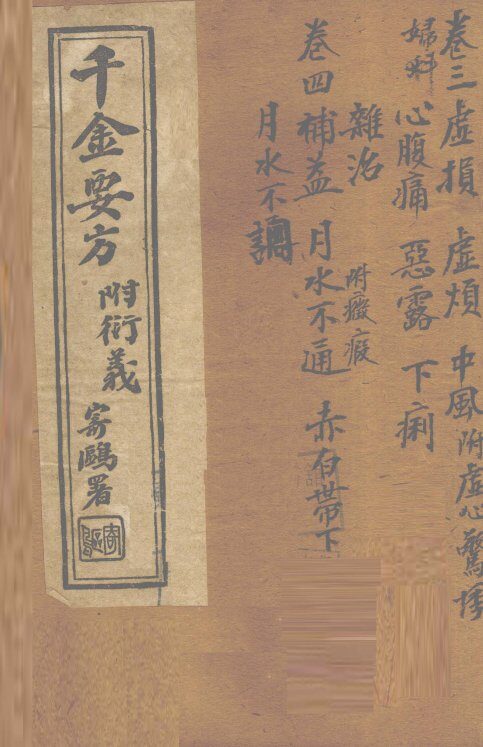 卷三 虛損 虛煩 中風 附虛心驚悸
婦科 心腹痛 惡露 下痢
雜治 附癥瘕
卷四 補益 月水不通 赤白帶下
月水不調
千金要方
附衍義
寄鷗署
寄鷗